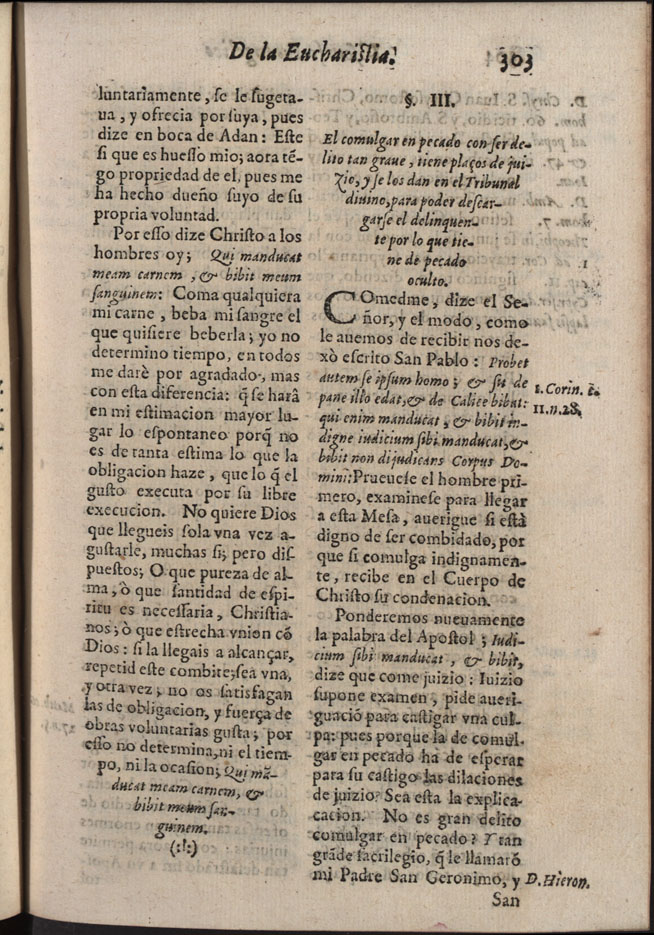 De la Euchariſtia.
303
luntariamente, ſe le ſugeta-
ua, y ofrecia por ſuya, pues
dize en boca de Adan: Eſte
ſi que es hueſſo mio; aora tē-
go propriedad de el, pues me
ha hecho dueño ſuyo de ſu
propria voluntad.
Por eſſo dize Chriſto a los
hombres oy; Qui manducat
meam carnem, & bibit meum
ſanguinem: Coma qualquiera
mi carne, beba mi ſangre el
que quiſiere beberla; yo no
determino tiempo, en todos
me darè por agradado, mas
con eſta diferencia: q̃ ſe harâ
en mi eſtimacion mayor lu-
gar lo eſpontaneo porq̃ no
es de tanta eſtima lo que la
obligacion haze, que lo q̃ el
guſto executa por ſu libre
execucion. No quiere Dios
que llegueis ſola vna vez a-
guſtarle, muchas ſi; pero diſ-
pueſtos; O que pureza de al-
ma, ò que ſantidad de eſpi-
ritu es neceſſaria, Chriſtia-
nos; ò que eſtrecha vnion cō
Dios: ſi la llegais a alcançar,
repetid eſte combite; ſea vna,
y otra vez; no os ſatisfagan
las de obligacion, y fuerça de
obras voluntarias guſta; por
eſſo no determina, ni el tiem-
po, ni la ocaſion; Qui mā-
ducat meam carnem, &
bibit meum ſan-
guinem.
(:!:)
§. III.
El comulgar en pecado con ſer de-
lito tan graue, tiene plaços de jui-
zio, y ſe los dan en el Tribunal
diuino, para poder deſcar-
garſe el delinquen-
te por lo que tie-
ne de pecado
oculto.
COmedme, dize el Se-
ñor, y el modo, como
le auemos de recibir nos de-
xò eſcrito San Pablo: Probet
autem ſe ipſum homo; & ſic de
pane illo edat, & de Calice bibat:
qui enim manducat, & bibit in-
digne iudicium ſibi manducat, &
bibit non dijudicans Corpus Do-
mini: Prueueſe el hombre pri-
mero, examineſe para llegar
a eſta Meſa, auerigue ſi eſtà
digno de ſer combidado, por
que ſi comulga indignamen-
te, recibe en el Cuerpo de
Chriſto ſu condenacion.
Ponderemos nueuamente
la palabra del Apoſtol; Iudi-
cium ſibi manducat, & bibit,
dize que come juizio: Iuizio
ſupone examen, pide aueri-
guació para caſtigar vna cul-
pa: pues porque la de comul-
gar en pecado ha de eſperar
para ſu caſtigo las dilaciones
de juizio? Sea eſta la explica-
cacion. No es gran delito
comulgar en pecado? Y tan
grāde ſacrilegio, q̃ le llamarō
mi Padre San Geronimo, y
San
1. Corin. c.
11. n. 28.
D. Hieron.